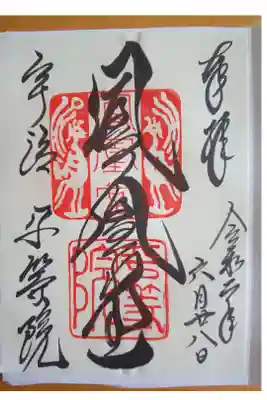 奉拝
令和二年
六月廿八日
鳳凰堂
宇治 平等院